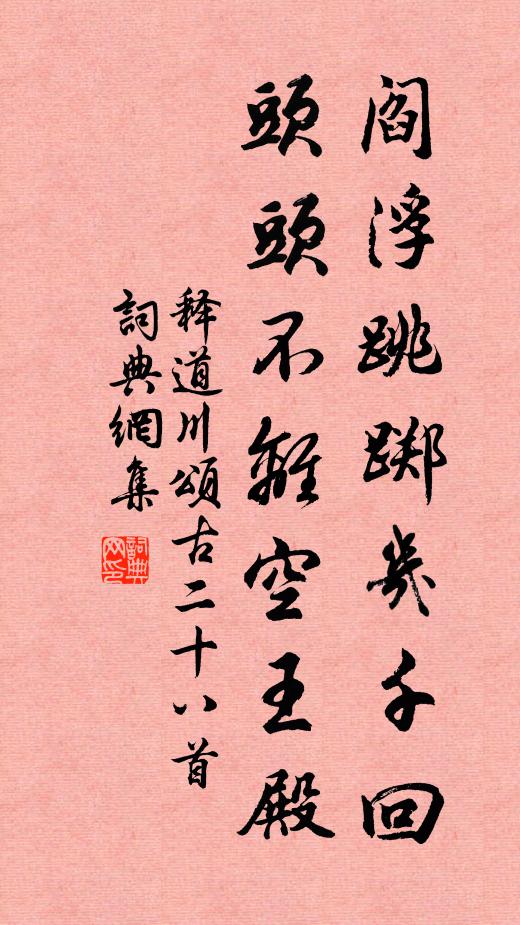 阎浮跳踯幾千回
頭頭不離空王殿
释道川頌古二十八首
詞典網集
詞典網印